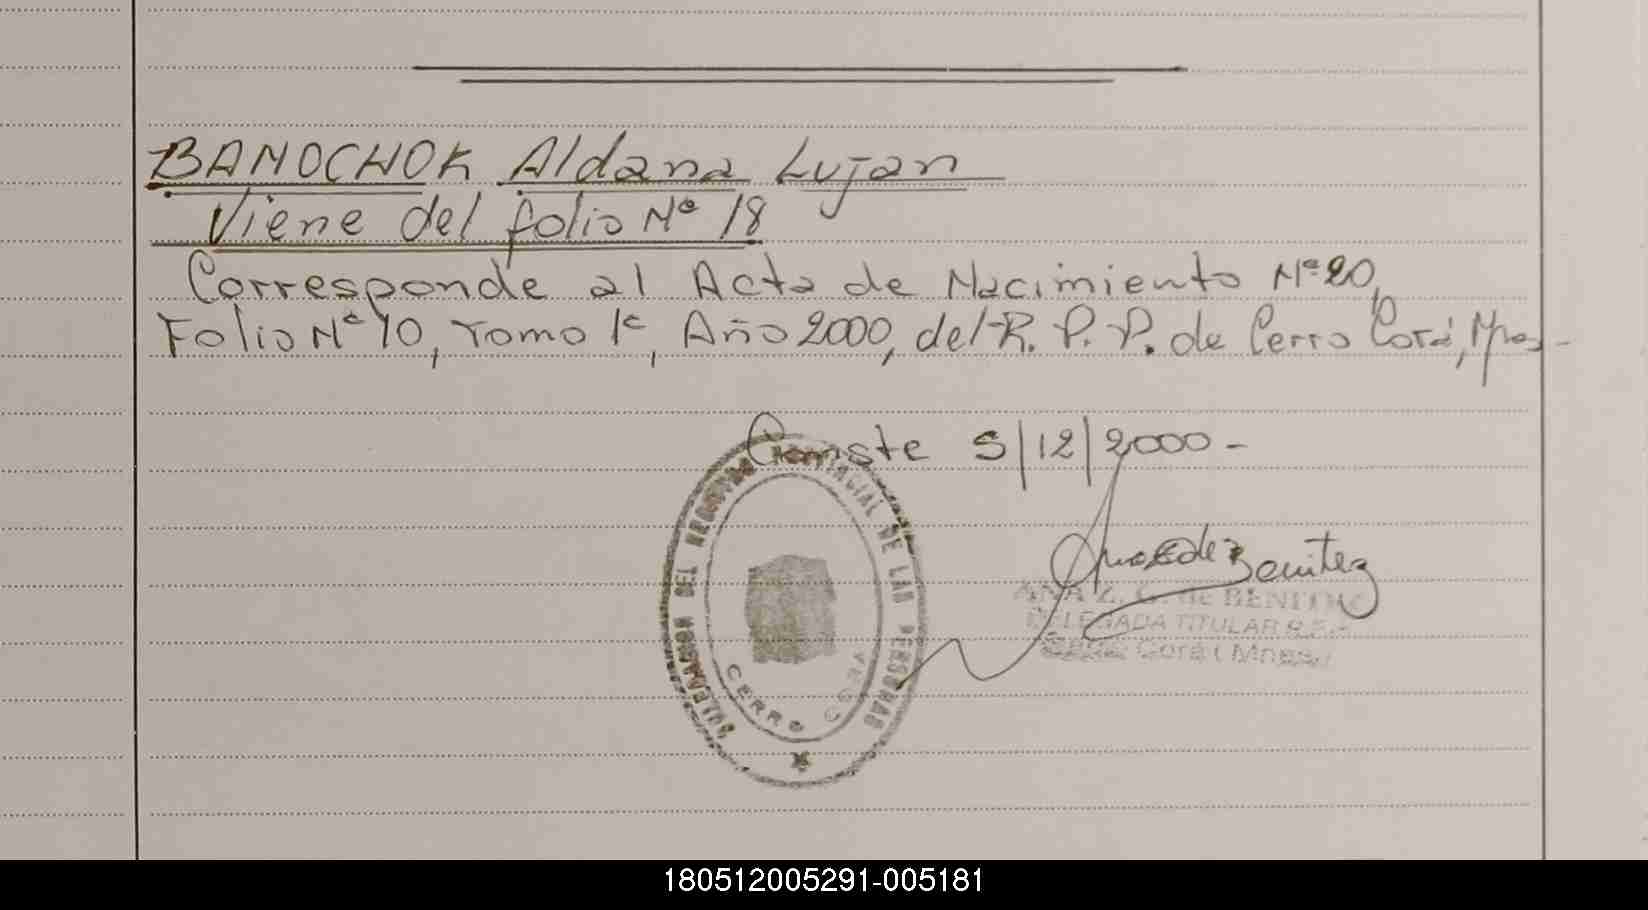 BANOCHOK Aldana Lujan
Viene del folio Nº 18
Corresponde al Acta de Nacimiento Nº 20,
Folio Nº 10, Tomo 1º, Año 2000, del R. P. P. de Cerro Corá, Mnes -
Conste 5/12/2000 -
DELEGACION DEL REGISTRO PROVINCIAL DE LAS PERSONAS
CERRO CORA
de Benitez
ANA Z. G. de BENITEZ
DELEGADA TITULAR R.P.P.
Cerro Corá (Mnes.)
180512005291-005181